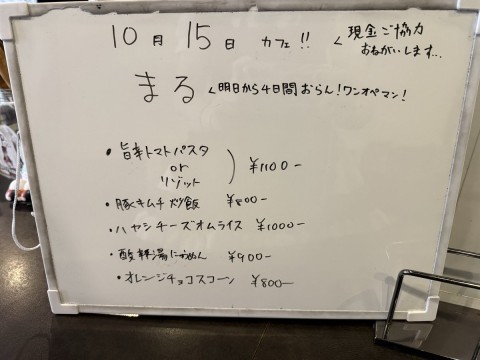 10月15日 カフェ!! < 現金ご協力
おねがいします…
まる < 明日から4日間おらん!ワンオペマン!
・旨辛トマトパスタ
or
リゾット ) ¥1100-
・豚キムチ炒飯 ¥800-
・ハヤシチーズオムライス ¥1000-
・酸辣湯にゅうめん ¥900-
・オレンジチョコスコーン ¥800-